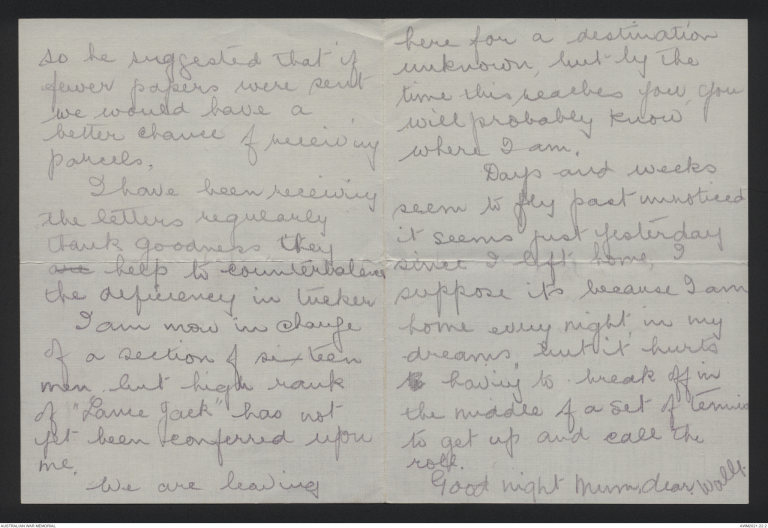 so he suggested that if
fewer papers were sent
we would have a
better chance of receiving
parcels.
I have been receiving
the letters regularly
thank goodness, they
are help to counterbalance
the deficiency in tucker
I am now in charge
of a section of sixteen
men but high rank
of "Lance Jack" has not
yet been conferred upon
me.
We are leaving
here for a destination
unknown, but by the
time this reaches you you
will probably know
where I am.
Days and weeks
seem to fly past unnoticed
it seems just yesterday
since I left home, I
suppose its because I am
home every night in my
dreams, but it hurts
having to break off in
the middle of a set of tennis
to get up and call the
roll.
Good night Mum, dear, Wally.
AUSTRALIAN WAR MEMORIAL
AWM2021.22.2